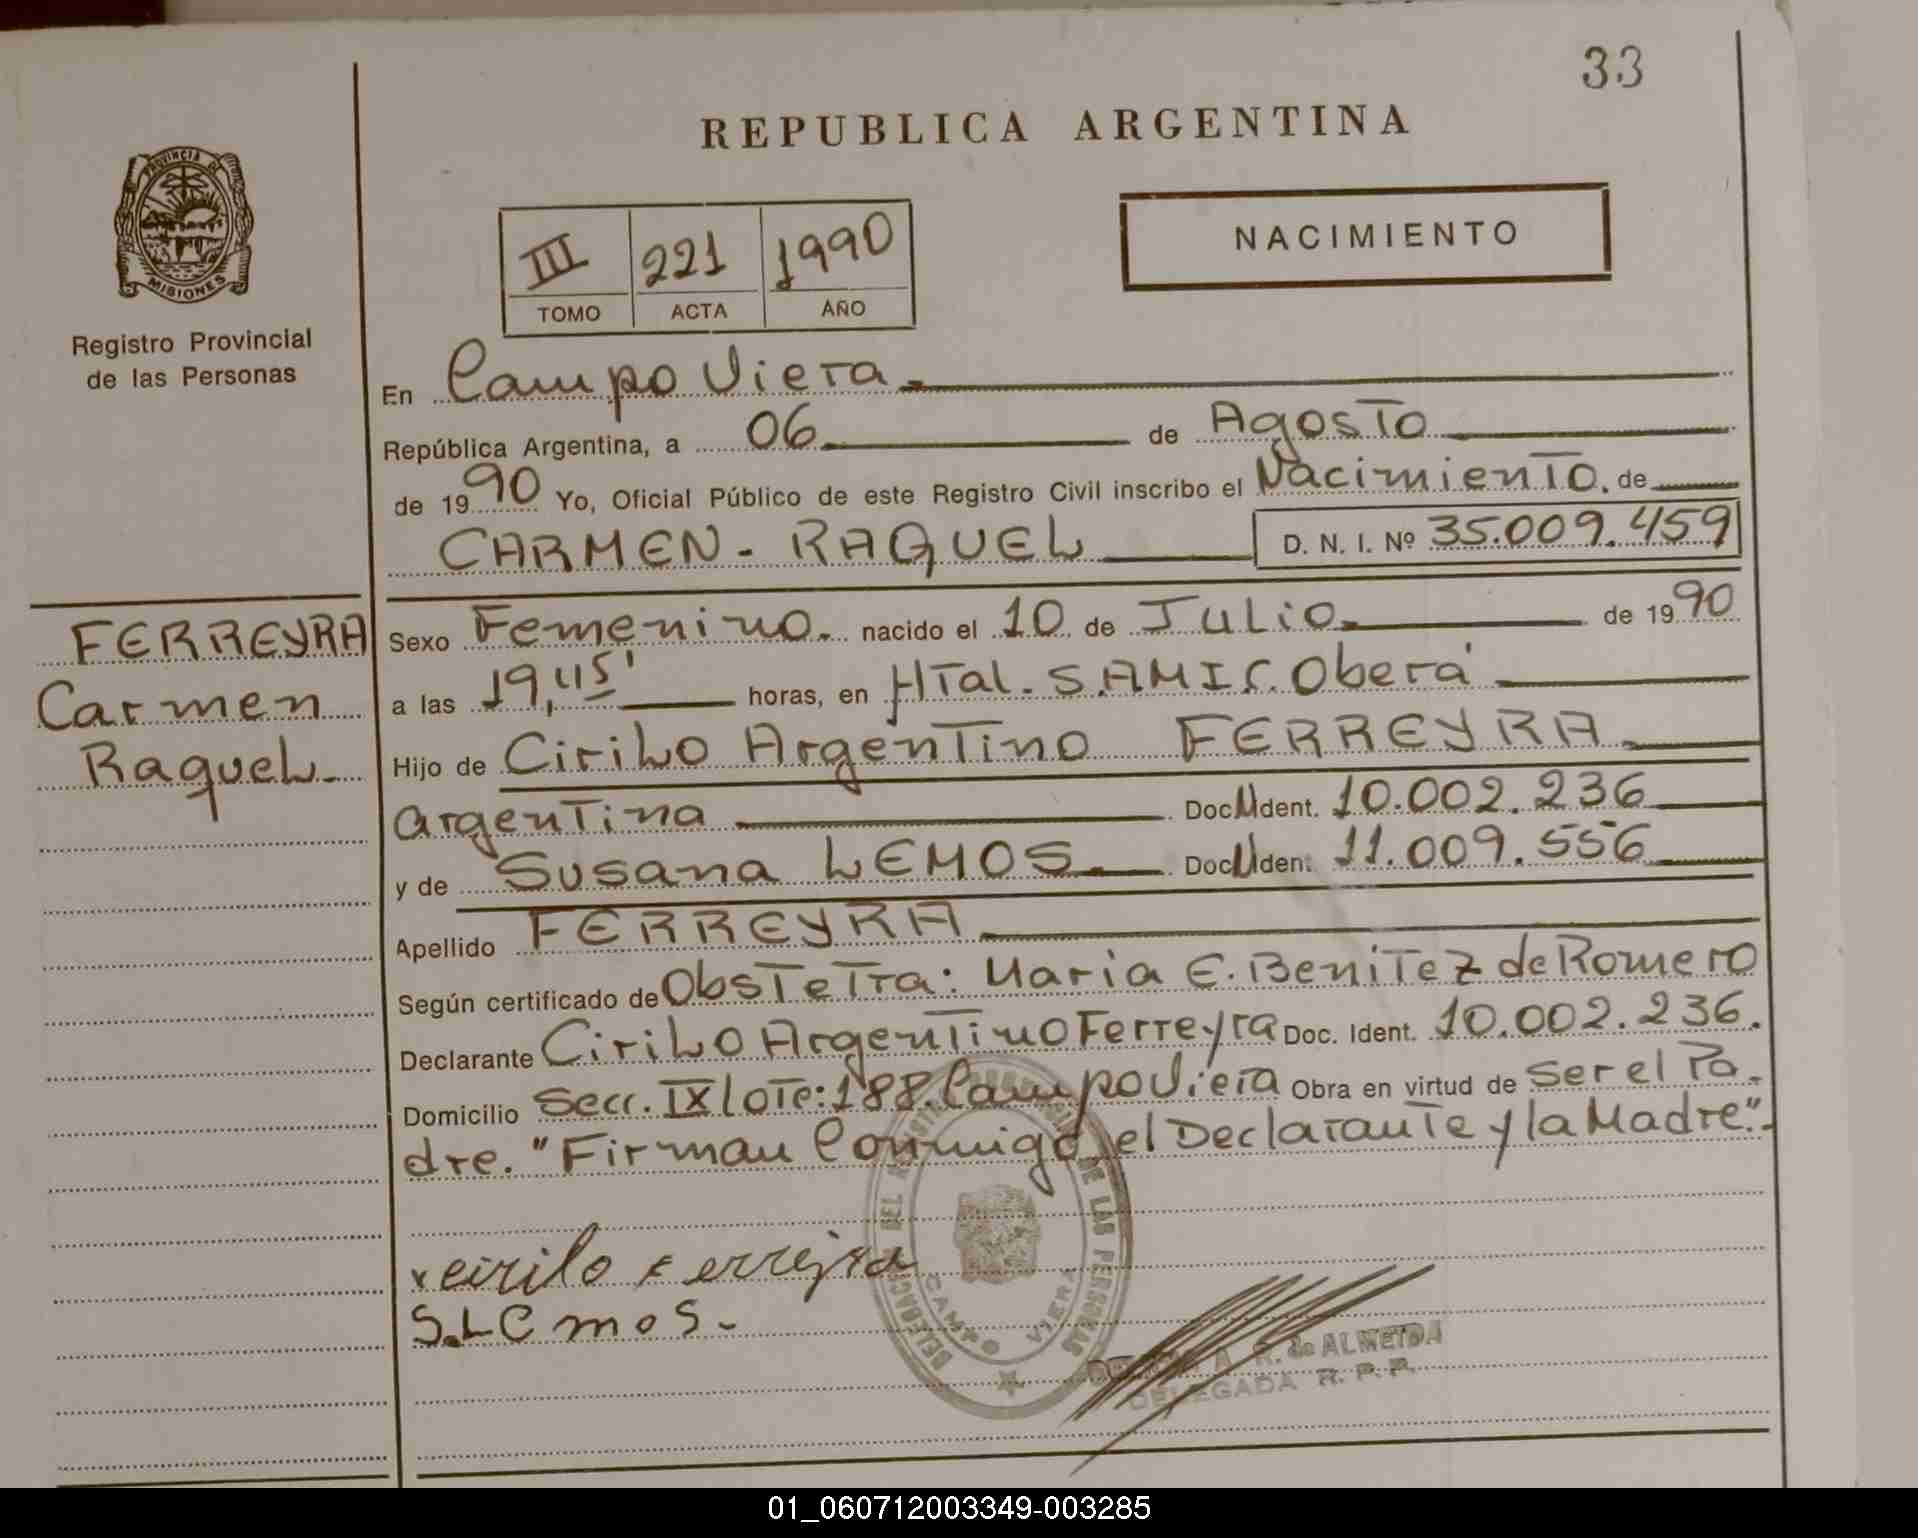 33
REPUBLICA ARGENTINA
PROVINCIA DE
MISIONES
Registro Provincial
de las Personas
NACIMIENTO
III 221 1990
TOMO ACTA AÑO
En Campo Viera.
República Argentina, a 06 de Agosto
de 1990 Yo, Oficial Público de este Registro Civil inscribo el Nacimiento. de
CARMEN - RAQUEL D. N. I. Nº 35.009.459
FERREYRA
Carmen
Raquel
Sexo Femenino. nacido el 10 de Julio. de 1990
a las 19,45' horas, en HTal. S.A.M.I.C. Oberá
Hijo de Cirilo Argentino FERREYRA
argentina Doc. Ident. 10.002.236
y de Susana LEMOS. Doc. Ident. 11.009.556
Apellido FERREYRA
Según certificado de Obstetra: Maria E. Benitez de Romero
Declarante Cirilo Argentino Ferreyra Doc. Ident. 10.002.236.
Domicilio Secc. IX lote: 188. Campo Viera Obra en virtud de ser el Pa-
dre. "Firman Conmigo, el Declarante y la Madre".-
x cirilo Ferreyra
S. LEmos.-
DE LAS PERSONAS
CAMPO VIERA
A. R. de ALMEIDA
DELEGADA R. P. P.
01_060712003349-003285